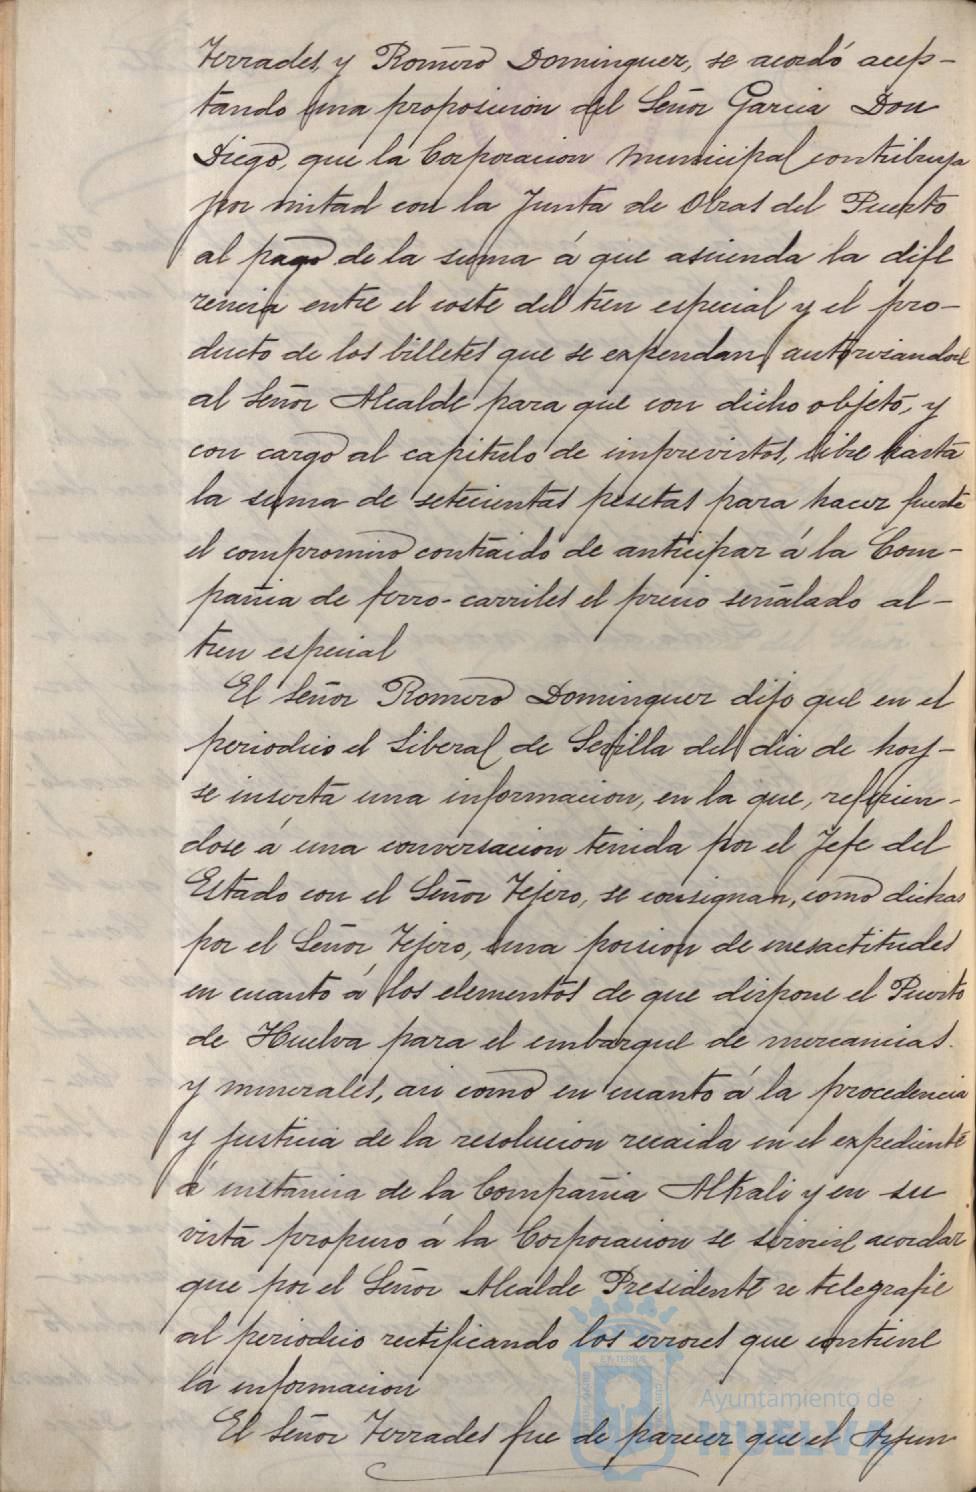 Terrades, y Romero Dominguez, se acordó acep-
tando una proposicion del Señor Garcia Don
Diego, que la Corporacion Municipal contribuya
por mitad con la Junta de Obras del Puerto
al pago de la suma á que ascienda la dife
rencia entre el coste del tren especial y el pro-
ducto de los billetes que se expendan, autorizandose
al Señor Alcalde para que con dicho objeto, y
con cargo al capitulo de imprevistos, libre hasta
la suma de setecientas pesetas para hacer frente
el compromiso contraido de anticipar á la Com-
pañia de ferro-carriles el precio señalado al-
tren especial
El Señor Romero Dominguez dijo que en el
periodico el Liberal de Sevilla del dia de hoy-
se inserta una informacion, en la que, refirien-
dose á una conversacion tenida por el Jefe del
Estado con el Señor Tejero, se consignan, como dichas
por el Señor Tejero, una porcion de inesactitudes
en cuanto á los elementos de que dispone el Puerto
de Huelva para el embarque de mercancias.
y minerales, asi como en cuanto á la procedencia
y justicia de la resolucion recaida en el expediente
á instancia de la Compañia Alkali y en su
vista propuso á la Corporacion se sirviese acordar
que por el Señor Alcalde Presidente se telegrafie
al periodico rectificando los errores que contiene
la informacion
El Señor Terrades fue de parecer que el Ayun
Ayuntamiento de
HUELVA